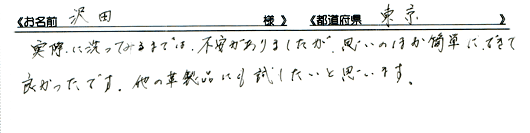 《お名前 沢田 様 》 《都道府県 東京 》
実際に洗ってみるまでは、不安がありましたが、思いのほか簡単にできて
良かったです。他の革製品にも試したいと思います。